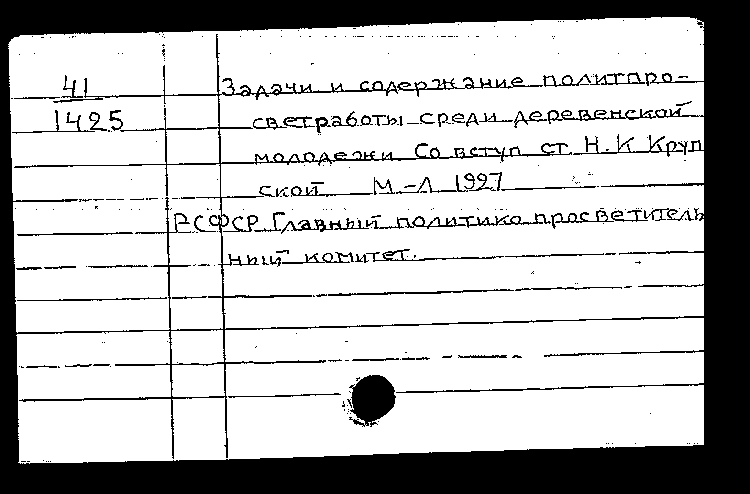 41
1425
Задачи и содержание политпро-
светработы среди деревенской
молодежи Со вступ ст. Н. К Круп
ской М.-Л 1927
РСФСР. Главный политико просветитель
ный комитет.